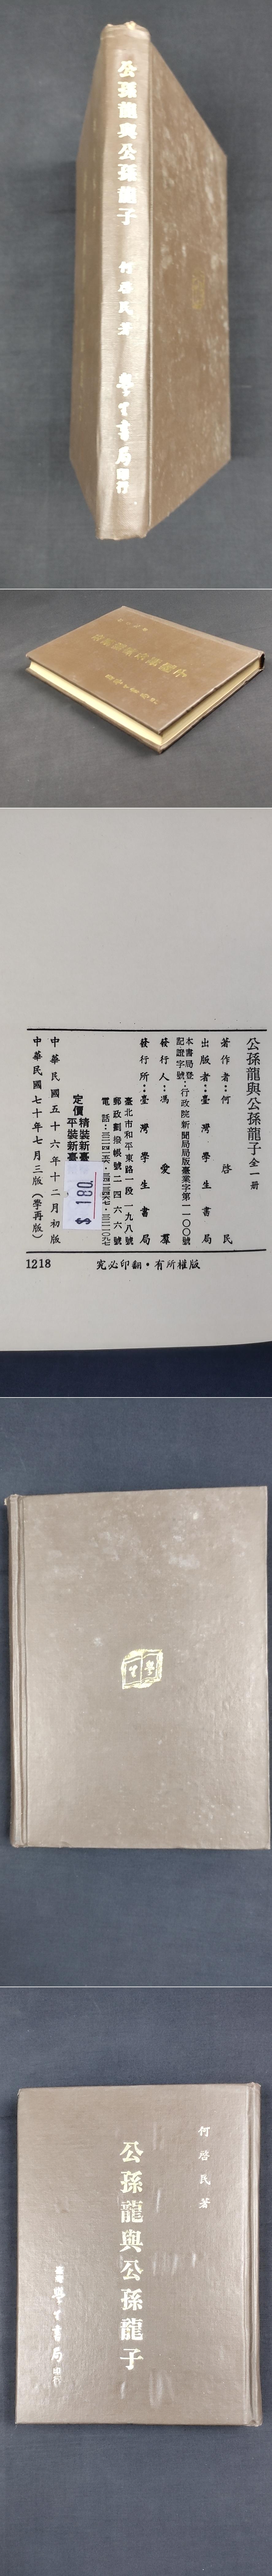 公孫龍與公孫龍子
何啓民著
學生書局印行
公孫龍與公孫龍子全一冊
著作者：何啓民
出版者：臺灣學生書局
本書局登記證字號：行政院新聞局局版臺業字第一一〇〇號
發行人：馮愛羣
發行所：臺灣學生書局
臺北市和平東路一段一九八號
郵政劃撥帳號二四六六號
定價
精裝新臺
平裝新臺
$ 180
中華民國五十六年十二月初版
中華民國七十年七月三版（學再版）
1218
究必印翻・有所權版
學生
何啓民著
公孫龍與公孫龍子
臺灣學生書局印行